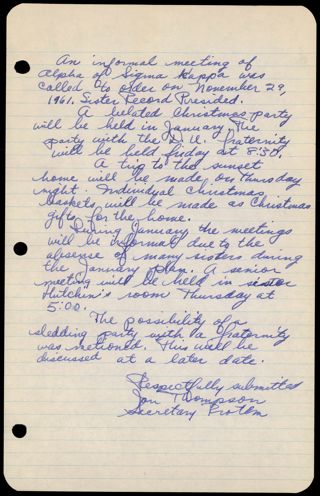 An informal meeting of
Alpha of Sigma Kappa was
called to order on November 29,
1961. Sister Record Presided.
A belated Christmas party
will be held in January. The
party with the D.U. fraternity
will be held friday at 8:30.
A trip to the sunset
home will be made on Thursday
night. Individual Christmas
baskets will be made as Christmas
gifts for the home.
During January the meetings
will be informal due to the
absense of many sisters during
the January plan. A senior
meeting will be held in sister
Hutchen's room Thursday at
5:00.
The possibility of a
sledding party with a fraternity
was metioned. This will be
discussed at a later date.
Respectfully submitted
Thompson
Secretary Protem